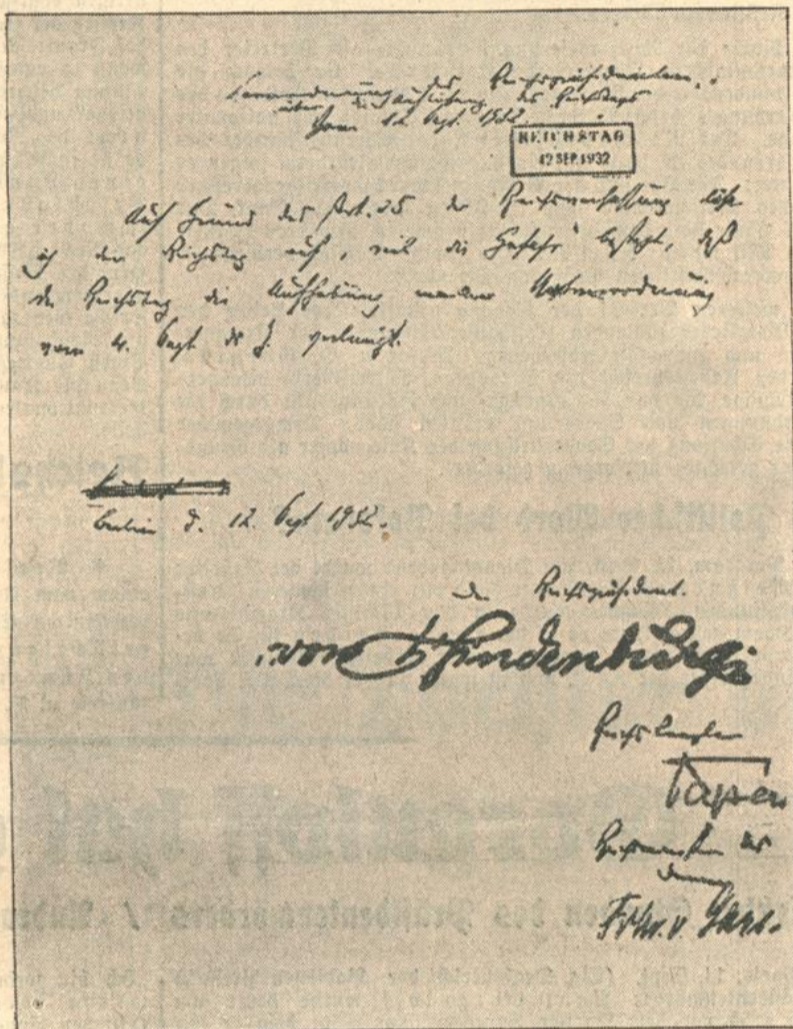 Verordnung des Reichspräsidenten
über die Auflösung des Reichstags
Vom 12. Sept. 1932.
REICHSTAG
12 SEP. 1932
Auf Grund des Art. 25 der Reichsverfassung löse
ich den Reichstag auf, weil die Gefahr besteht, daß
der Reichstag die Aufhebung meiner Notverordnung
vom 4. Sept. d. J. verlangt.
Berlin d. 12. Sept 1932.
Der Reichspräsident.
von Hindenburg
Reichskanzler
Papen
Reichsminister des
Innern
Frhr. v. Gayl.